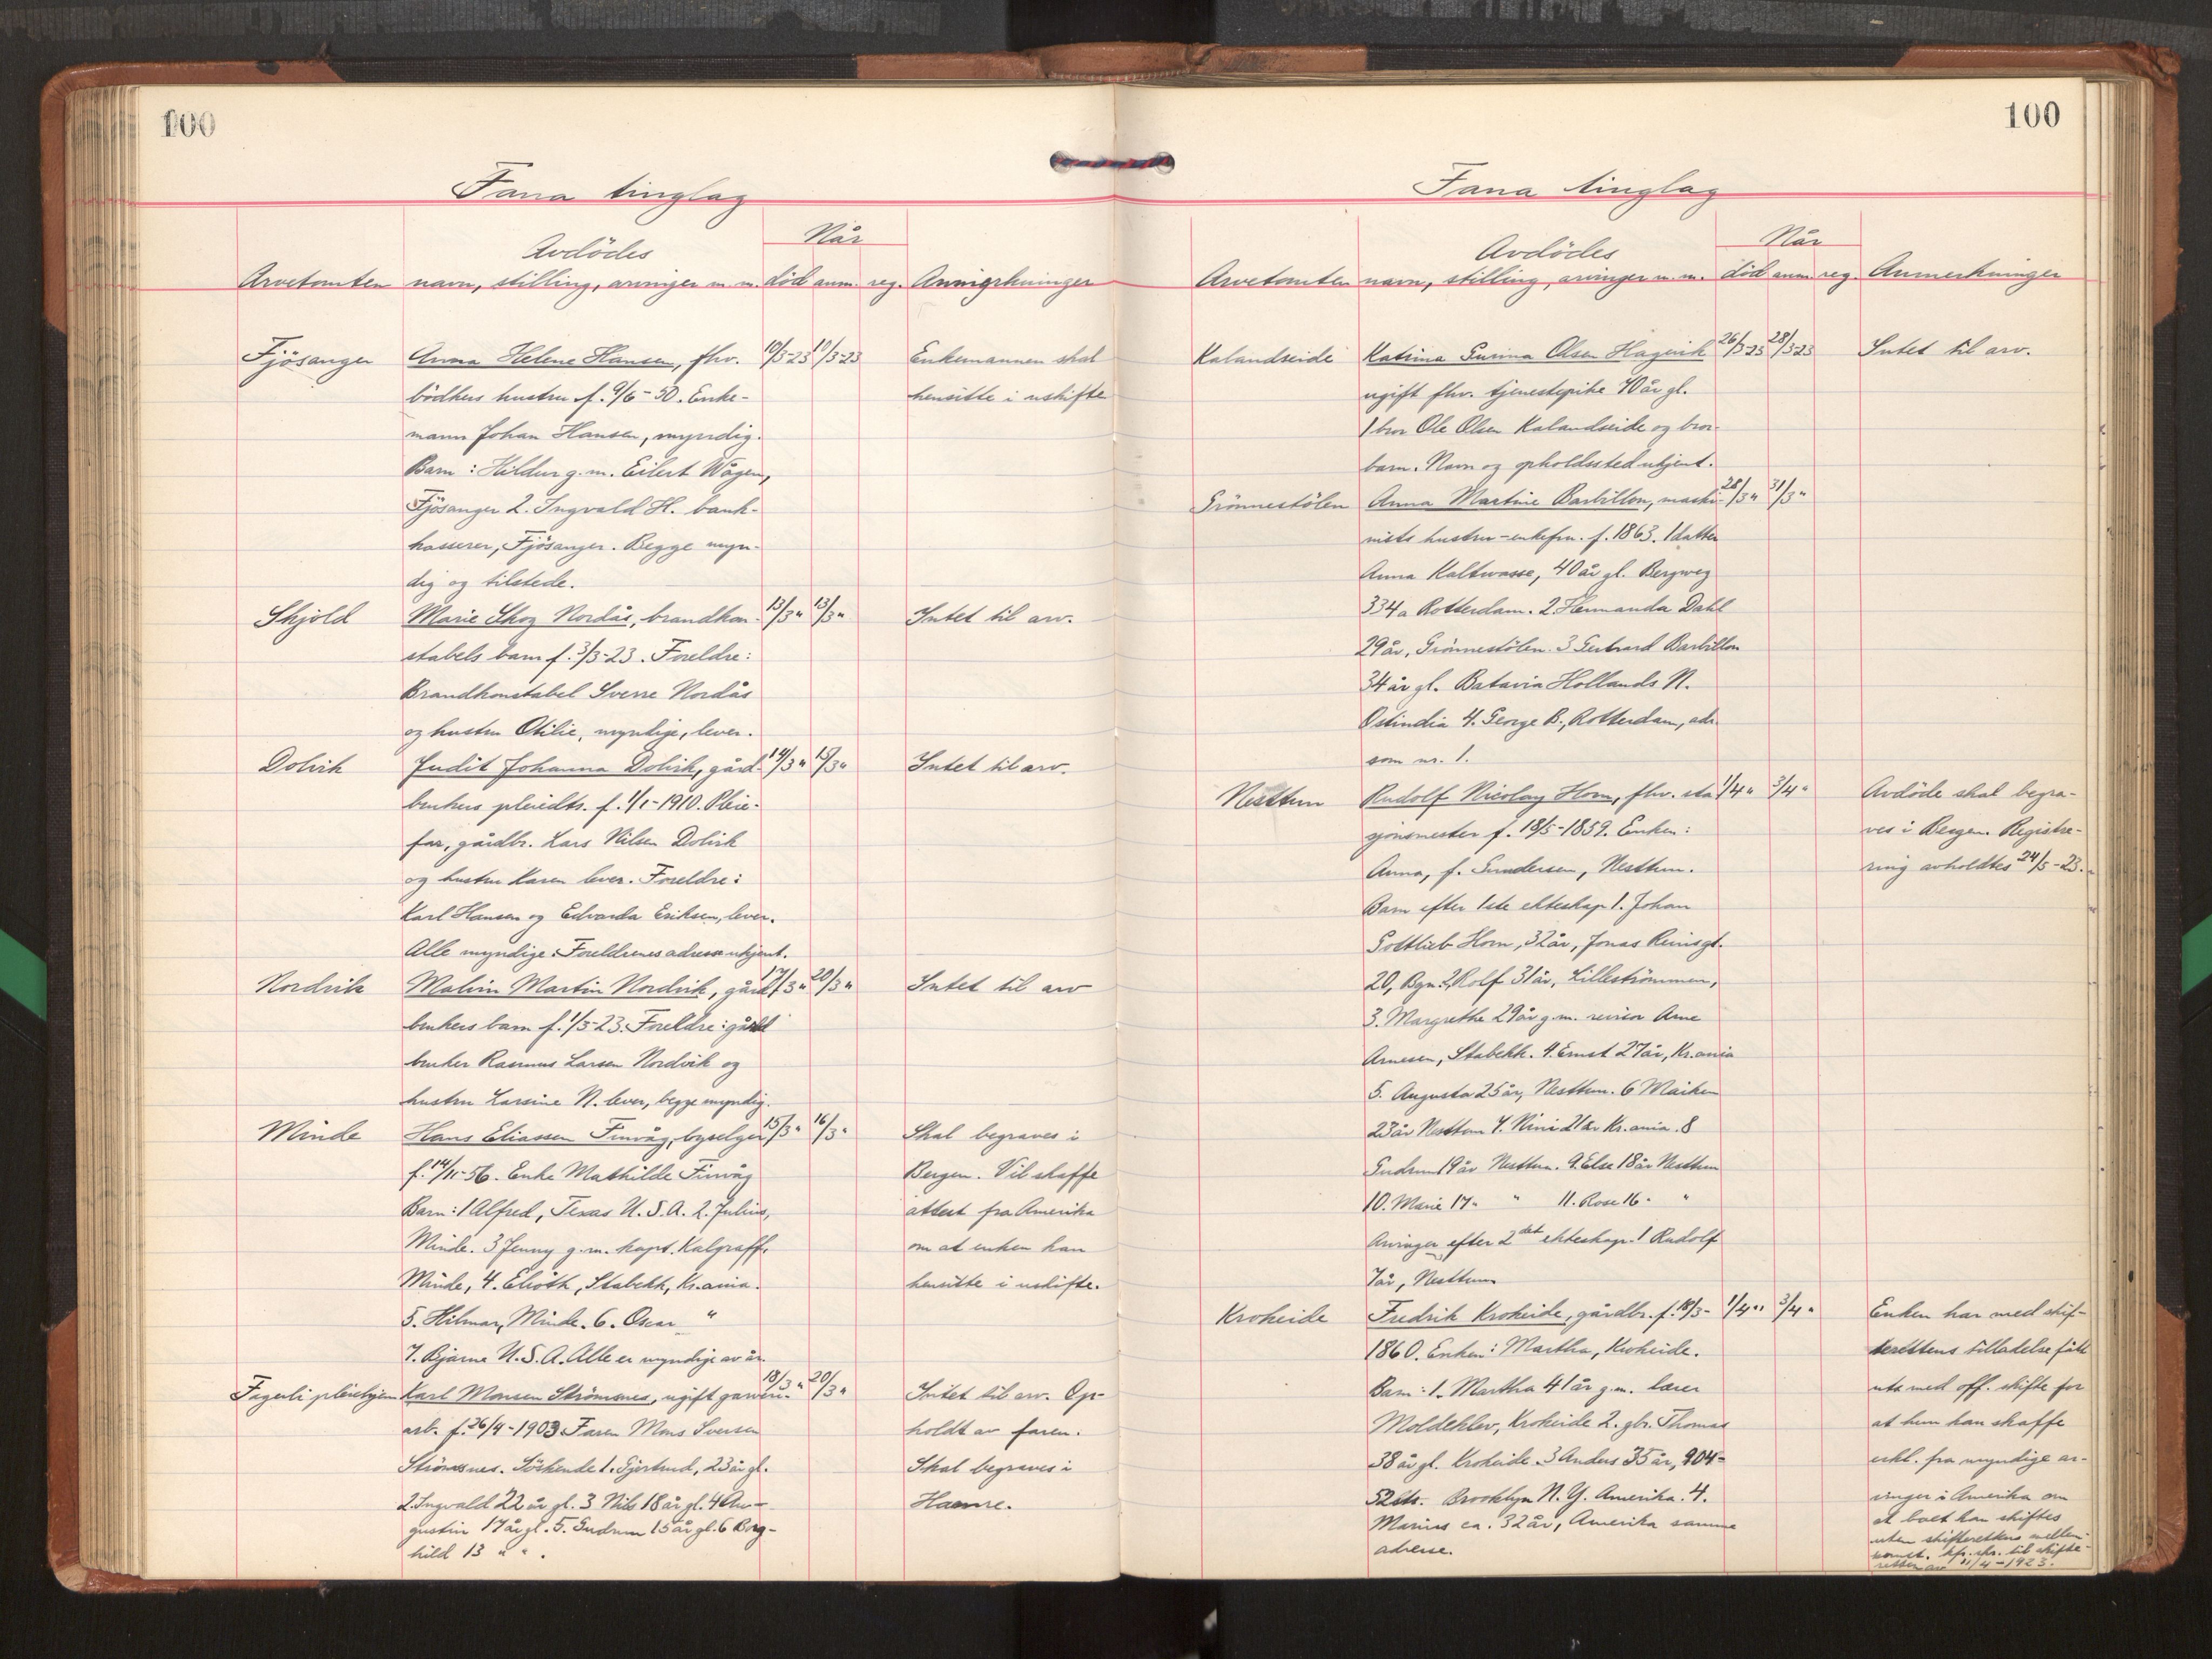 100
Fana tinglag
Når
Avdödes
Arvetomten navn, stilling, arvinger m. m. död anm. reg. Anmerkninger
Fjösanger Anna Helene Hansen, fhv. 10/3-23 10/3-23 Enkemannen skal
bödkers hustru f. 9/6-50. Enke- hensitte i uskifte
mann Johan Hansen, myndig.
Barn: Hildur g. m. Eilert Wågen,
Fjösanger 2. Ingvald H. bank-
kasserer, Fjösanger. Begge myn-
dig og tilstede.
Skjold Marie Skog Nordås, brandkon- 13/3 " 13/3 " Intet til arv.
stabels barn f. 3/3-23. Foreldre:
Brandkonstabel Sverre Nordås
og hustru Otilie, myndige, lever.
Dolvik Judit Johanna Dolvik, gård- 14/3 " 15/3 " Intet til arv.
brukers pleiedtr. f. 1/1-1910. Pleie-
far, gårdbr. Lars Nilsen Dolvik
og hustru Karen lever. Foreldre:
Karl Hansen og Edvarda Eriksen, lever.
Alle myndige. Foreldrenes adresse ukjent.
Nordvik Malvin Martin Nordvik, gård- 17/3 " 20/3 " Intet til arv
brukers barn f. 1/3-23. Foreldre: gård
bruker Rasmus Larsen Nordvik og
hustru Larsine N. lever, begge myndig.
Minde Hans Eliassen Finvåg, byselger 15/3 " 16/3 " Skal begraves i
f. 14/11-56. Enke Mathilde Finvåg Bergen. Vil skaffe
Barn: 1 Alfred, Texas U.S.A. 2. Julius, attest fra Amerika
Minde. 3 Jenny g. m. kapt. Kalgraff, om at enken kan
Minde, 4. Elioth, Stabekk, Kr.ania. hensitte i uskifte.
5. Hilmar, Minde. 6. Oscar "
7. Bjarne U.S.A. Alle er myndige av år.
Fagerli pleiehjem Karl Monsen Strömsnes, ugift garveri- 18/3 " 20/3 " Intet til arv. Op-
arb. f. 26/4-1903. Faren Mons Iversen holdt av faren.
Strömsnes. Söskende 1. Gjertrud, 23 år gl. Skal begraves i
2. Ingvald 22 år gl. 3 Nils 18 år gl. 4 Au- Hamre.
gustin 17 år gl. 5. Gudrun 15 år gl. 6 Borg-
hild 13 " " .
100
Fana tinglag
Når
Avdödes
Arvetomten navn, stilling, arvinger m. m. död anm. reg. Anmerkninger
Kalandseide Katrina Gurina Olsen Hagevik 26/3-23 28/3-23 Intet til arv.
ugift fhv. tjenestepike 70 år gl.
1 bror Ole Olsen Kalandseide og bror-
barn. Navn og opholdssted ukjent.
Grönnestölen Anna Martine Barbillon, maski- 28/3 " 31/3 "
nists hustru - enkefru. f. 1863. 1 datter
Anna Kaltwasse, 40 år gl. Bergweg
334a Rotterdam. 2. Hermanda Dahl
29 år, Grönnestölen. 3 Gerhard Barbillon
34 år gl. Batavia Hollands N.
Ostindia 4. George B., Rotterdam, adr
som nr. 1.
Nesttun Rudolf Nicolay Horn, fhv. sta- 1/4 " 3/4 " Avdöde skal begra-
sjonsmester f. 18/5-1859. Enken: ves i Bergen. Registre-
Anna, f. Gundersen, Nesttun. ring avholdtes 24/5-23.
Barn efter 1ste ekteskap 1. Johan
Gottlieb Horn, 32 år, Jonas Reinsgt.
20, Bgn. 2. Rolf 31 år, Lilleströmmen,
3. Margrethe 29 år g. m. revisor Arne
Arnesen, Stabekk. 4. Ernst 27 år, Kr.ania
5. Augusta 25 år, Nesttun. 6 Maiken
23 år Nesttun 7. Nini 21 år Kr.ania. 8
Gudrun 19 år Nesttun. 9. Else 18 år Nesttun
10. Marie 17 " " 11. Rose 16 " "
Arvinger efter 2det ekteskap. 1 Rudolf
7 år, Nesttun
Krokeide Fredrik Krokeide, gårdbr. f. 18/3- 1/4 " 3/4 " Enken har med skif-
1860. Enken: Martha, Krokeide. terettens tilladelse fått
Barn: 1. Martha 41 år g. m. lærer uts. med off. skifte for
Moldeklev, Krokeide 2. gbr. Thomas at hun kan skaffe
38 år gl. Krokeide. 3 Anders 35 år, 904- erkl. fra myndige ar-
52 str. Brooklyn N.Y. Amerika. 4. vinger i Amerika om
Marius ca. 32 år, Amerika samme at boet kan skiftes
adresse. uten skifterettens mellem-
komst. kfr. skr. til skifte-
retten av 11/4-1923.